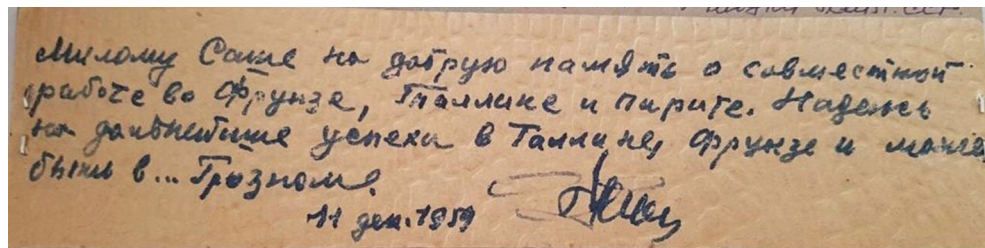 Милому Саше на добрую память о совместной
работе во Фрунзе, Таллине и Пирите. Надеюсь
на дальнейшие успехи в Таллине, Фрунзе и может
быть в... Грозном.
11 дек. 1959